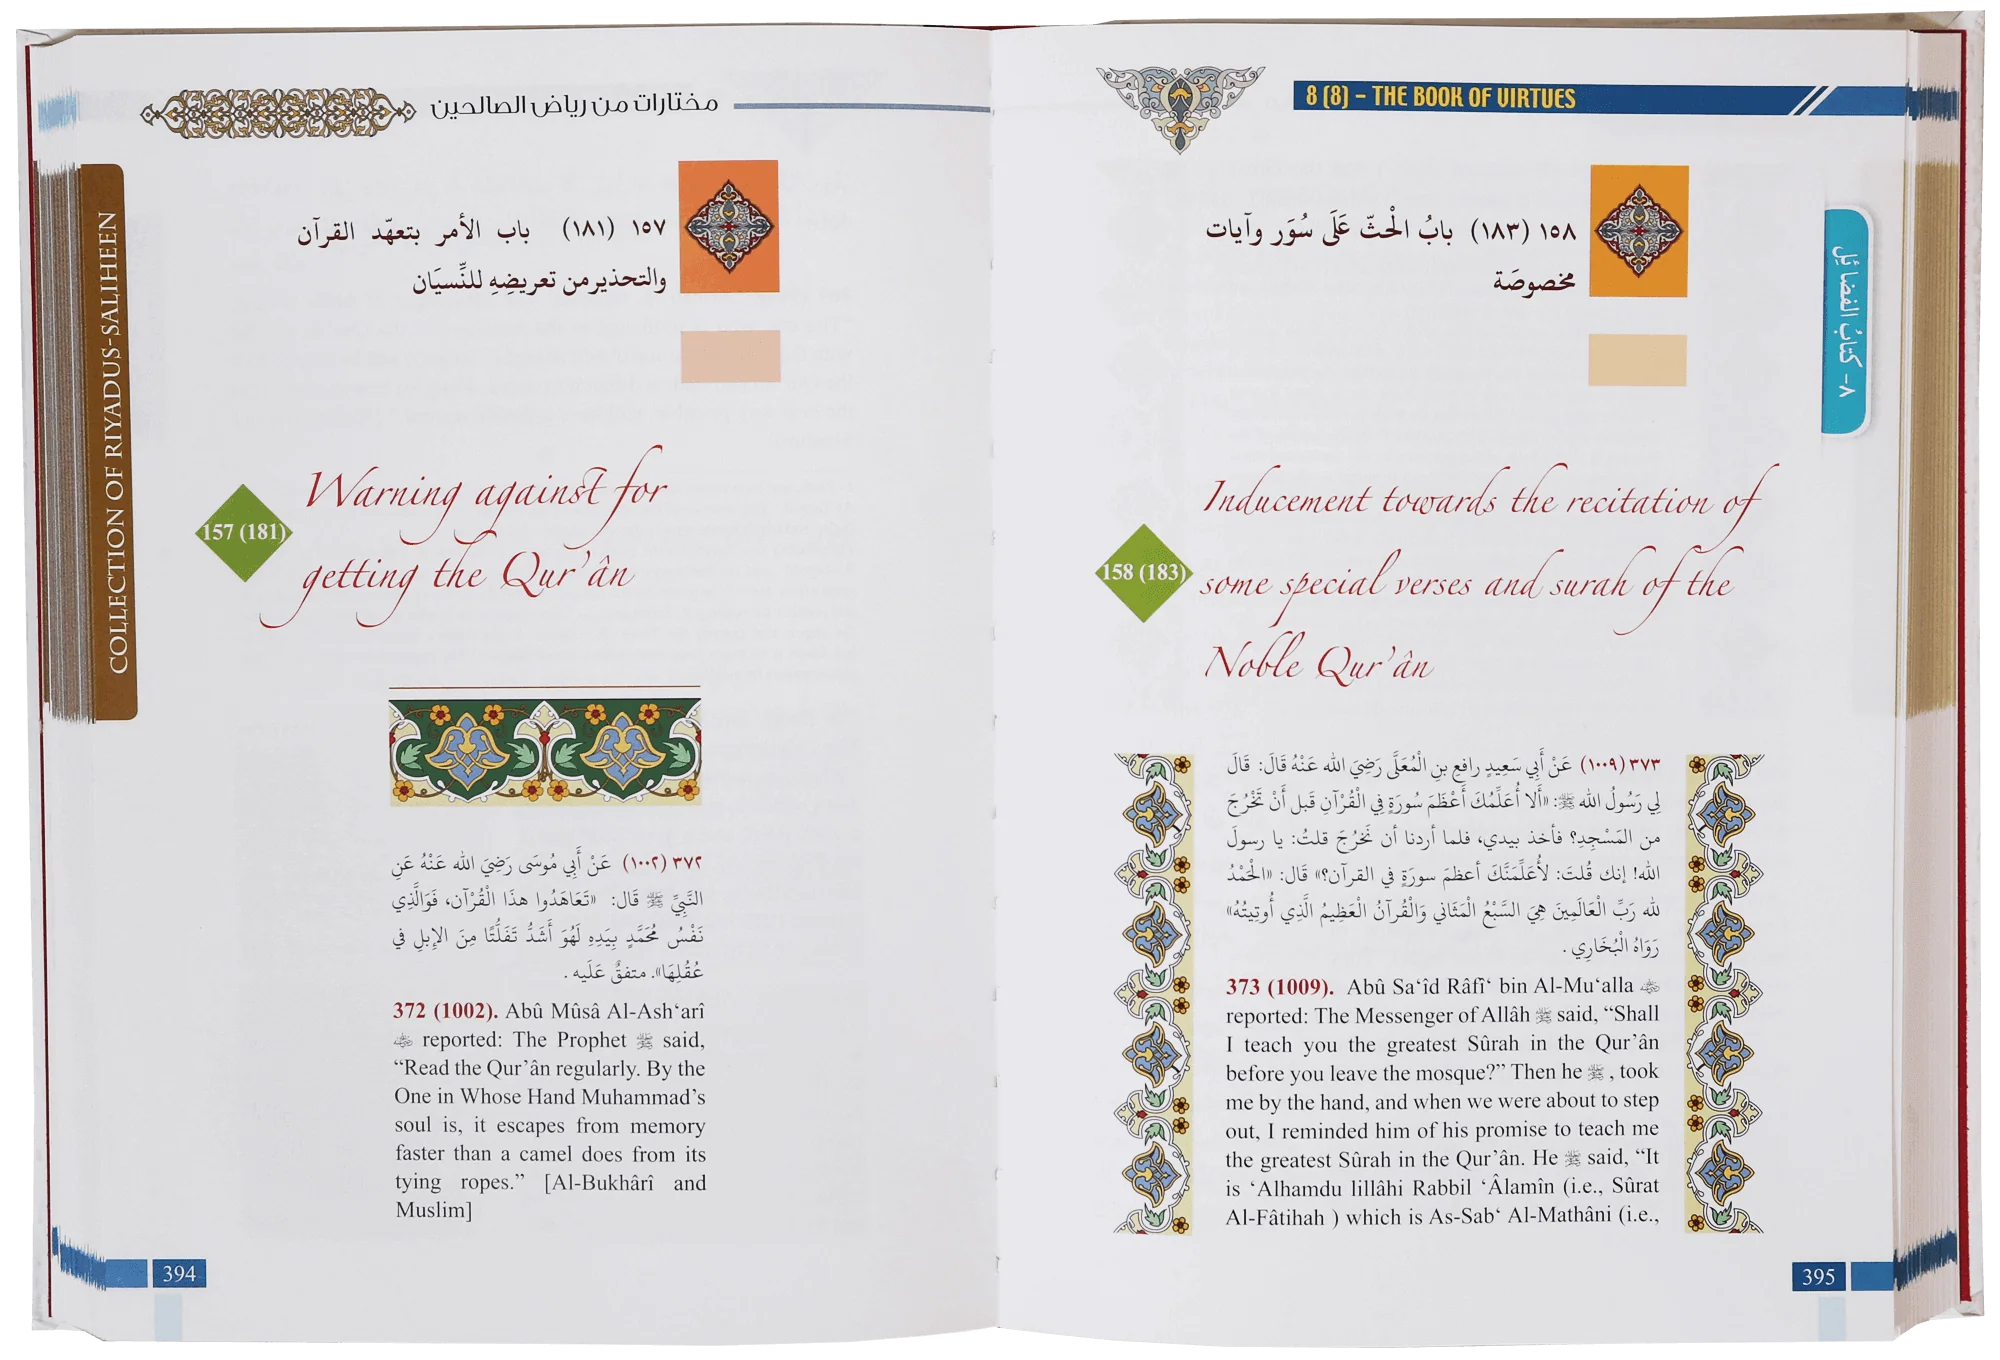 مختارات من رياض الصالحين
COLLECTION OF RIYADUS-SALIHEEN
١٥٧ (١٨١) باب الأمر بتعهّد القرآن
والتحذير من تعريضِهِ للنِّسيَان
157 (181)
Warning against for
getting the Qur’ân
٣٧٢ (١٠٠٢) عَنْ أَبِي مُوسَى رَضِيَ الله عَنْهُ عَنِ
النَّبِيِّ ﷺ قَال: «تَعَاهَدُوا هذَا الْقُرْآن، فَوَالَّذِي
نَفْسُ مُحَمَّدٍ بِيَدِهِ لَهُوَ أَشَدُّ تَفَلُّتًا مِنَ الإِبِلِ في
عُقُلِهَا». متفقٌ عَلَيه .
372 (1002). Abû Mûsâ Al-Ash‘arî
reported: The Prophet ﷺ said,
“Read the Qur’ân regularly. By the
One in Whose Hand Muhammad’s
soul is, it escapes from memory
faster than a camel does from its
tying ropes.” [Al-Bukhârî and
Muslim]
394
8 (8) – THE BOOK OF VIRTUES
٨- كتابُ الفضائل
١٥٨ (١٨٣) بابُ الْحثّ عَلَى سُوَر وآيات
مخصوصَة
158 (183)
Inducement towards the recitation of
some special verses and surah of the
Noble Qur’ân
٣٧٣ (١٠٠٩) عَنْ أَبِي سَعِيدٍ رافعِ بنِ الْمُعَلَّى رَضِيَ الله عَنْهُ قَالَ: قَالَ
لِي رَسُولُ الله ﷺ: «أَلا أُعَلِّمُكَ أَعْظَمَ سُورَةٍ فِي الْقُرْآنِ قَبل أَنْ تَخْرُجَ
من المَسْجِدِ؟ فأخذ بيدي، فلما أردنا أن نَخرُجَ قلتُ: يا رسولَ
الله! إنك قُلتَ: لأُعَلِّمَنَّكَ أعظمَ سورَةٍ في القرآن؟» قال: «الْحَمْدُ
لله رَبِّ الْعَالَمِينَ هِيَ السَّبْعُ الْمَثَاني وَالْقُرآنُ الْعَظِيمُ الَّذِي أُوتِيتُهُ»
رَوَاهُ الْبُخَارِي .
373 (1009). Abû Sa‘îd Râfi‘ bin Al-Mu‘alla
reported: The Messenger of Allâh ﷺ said, “Shall
I teach you the greatest Sûrah in the Qur’ân
before you leave the mosque?” Then he ﷺ, took
me by the hand, and when we were about to step
out, I reminded him of his promise to teach me
the greatest Sûrah in the Qur’ân. He ﷺ said, “It
is ‘Alhamdu lillâhi Rabbil ‘Âlamîn (i.e., Sûrat
Al-Fâtihah ) which is As-Sab‘ Al-Mathâni (i.e.,
395